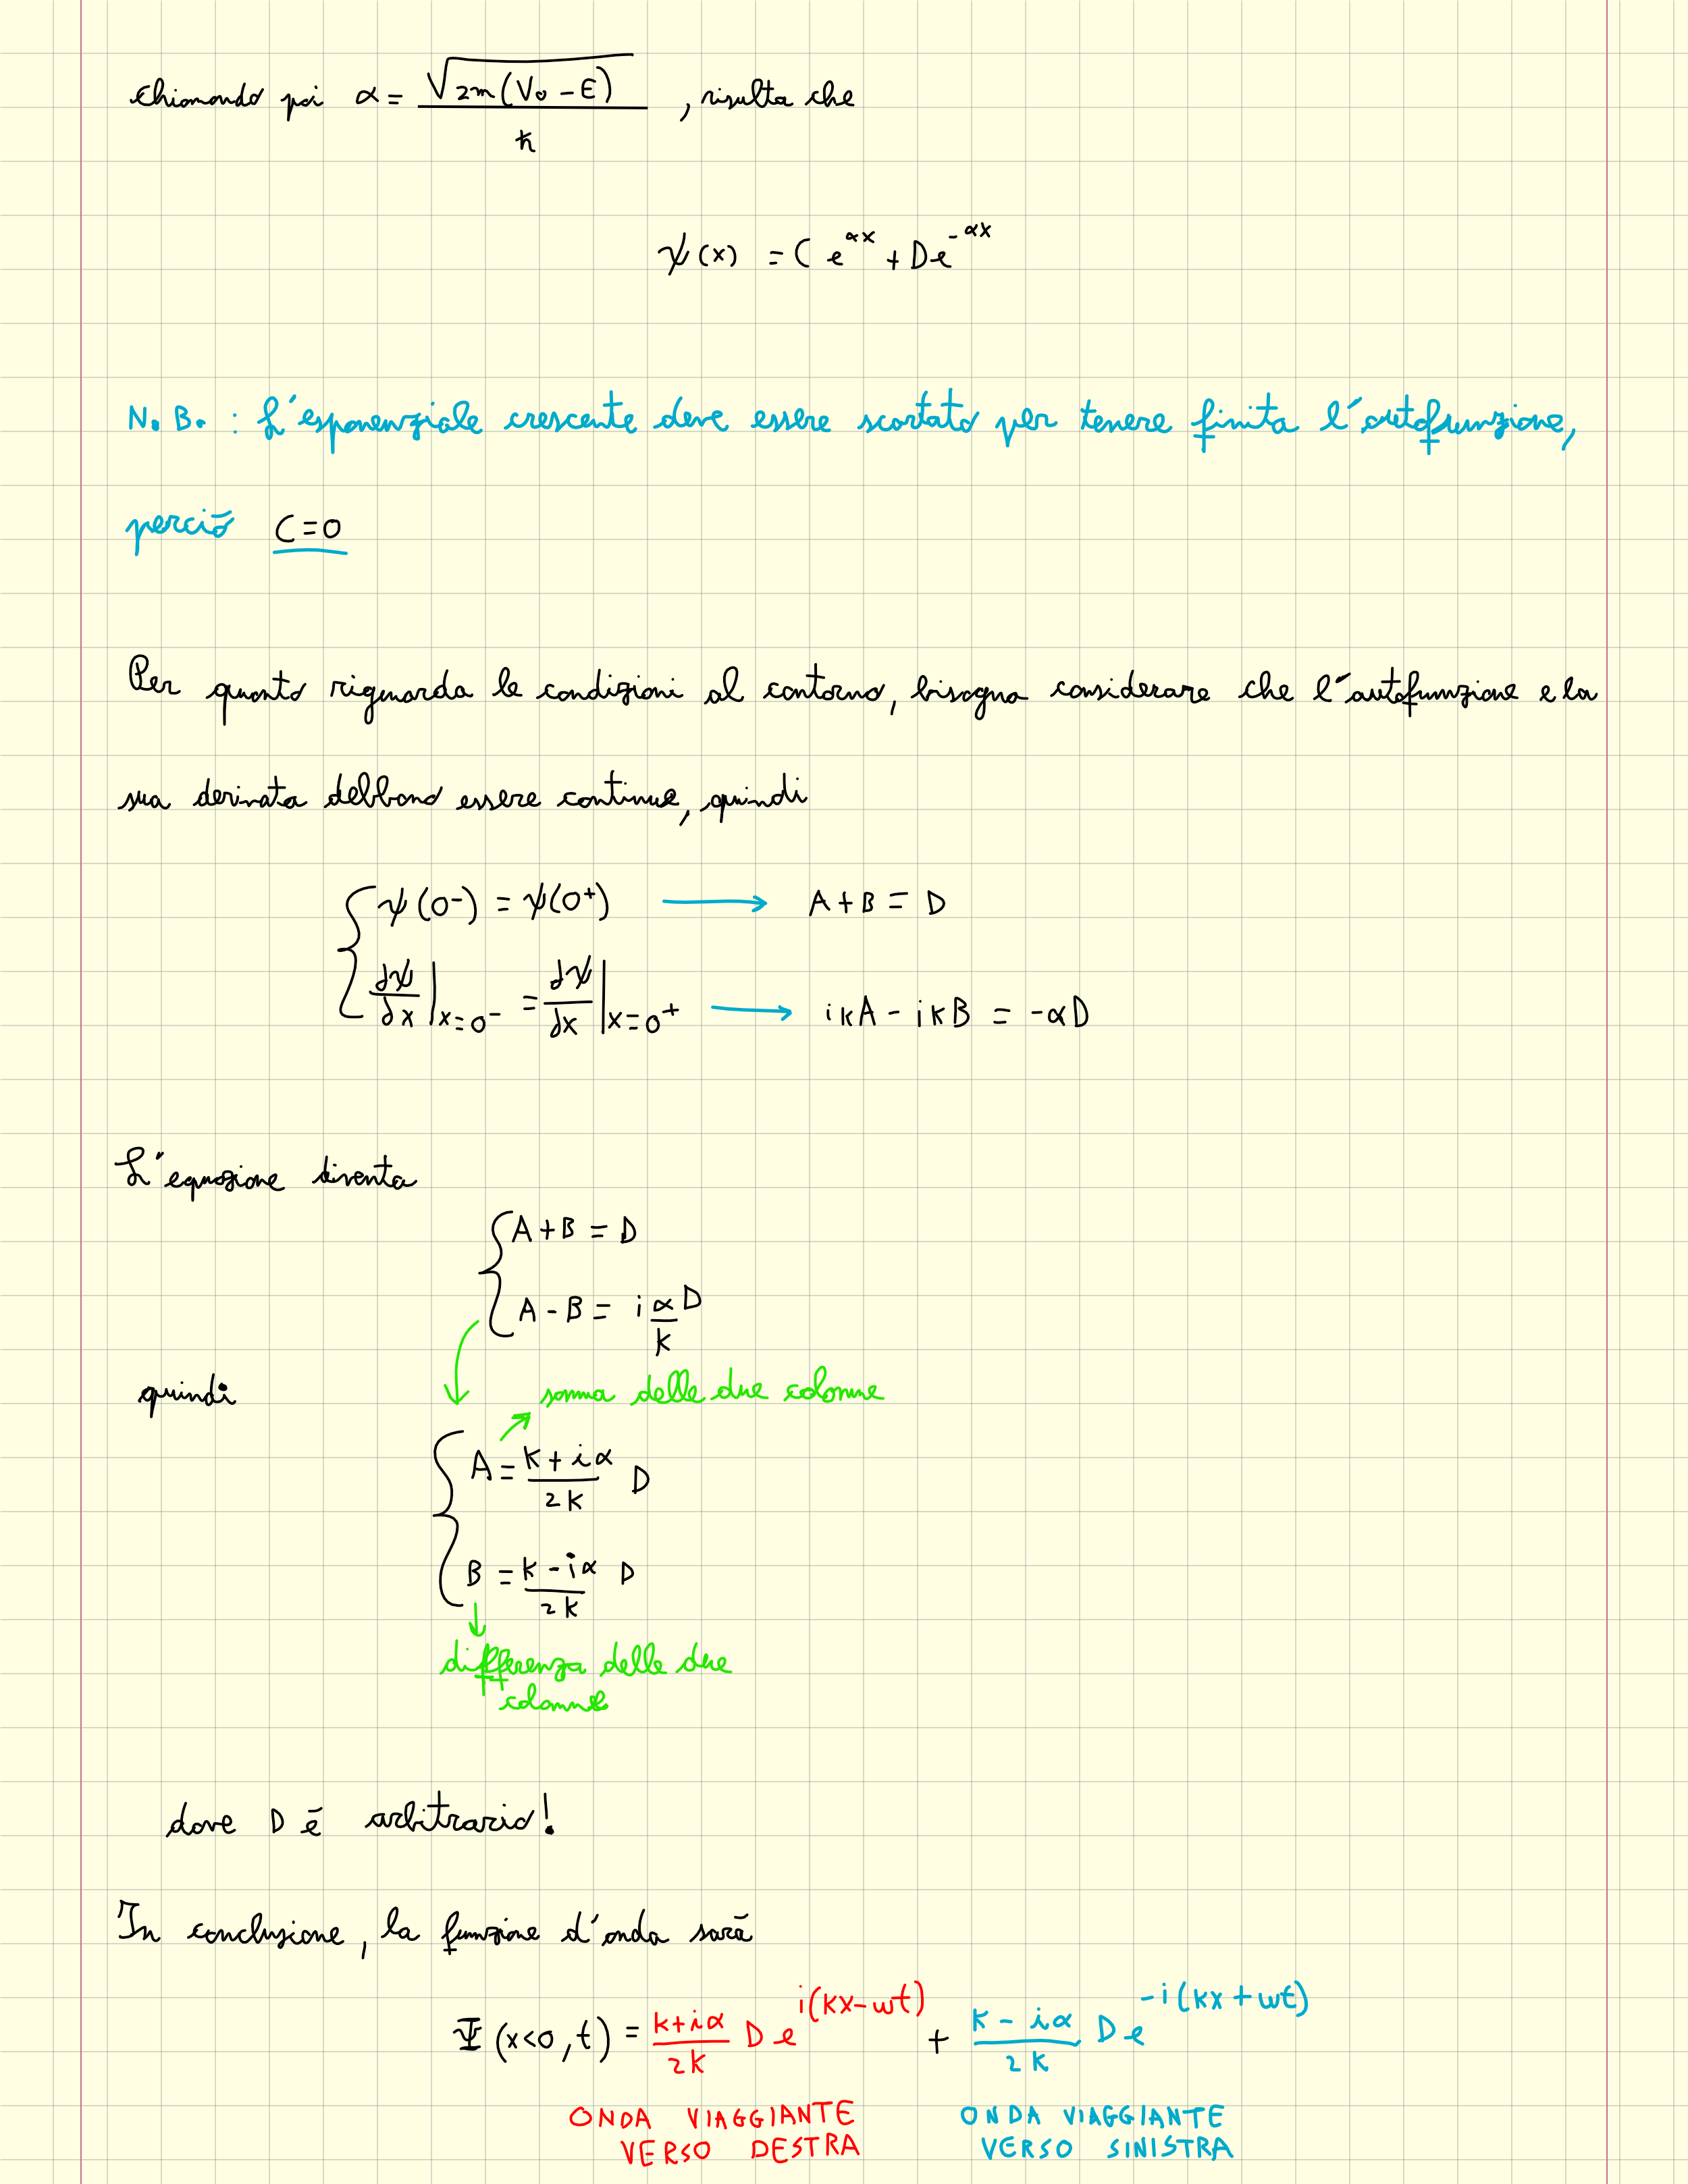 Chiamando poi α = √(2m(V₀ - E)) / ℏ , risulta che
ψ(x) = C e^{αx} + D e^{-αx}
N.B. : L'esponenziale crescente deve essere scartato per tenere finita l'autofunzione,
perciō C=0
Per quanto riguarda le condizioni al contorno, bisogna considerare che l'autofunzione e la
sua derivata debbano essere continue, quindi
ψ(0⁻) = ψ(0⁺) → A+B = D
dψ/dx |x=0⁻ = dψ/dx |x=0⁺ → ikA - ikB = -αD
L'equazione diventa
A+B = D
A-B = i α/k D
quindi
somma delle due colonne
A = (k+iα)/2k D
B = (k-iα)/2k D
differenza delle due
colonne
dove D ē arbitrario!
In conclusione, la funzione d'onda sarā
Ψ(x<0,t) = (k+iα)/2k D e^{i(kx-ωt)} + (k-iα)/2k D e^{-i(kx+ωt)}
ONDA VIAGGIANTE ONDA VIAGGIANTE
VERSO DESTRA VERSO SINISTRA